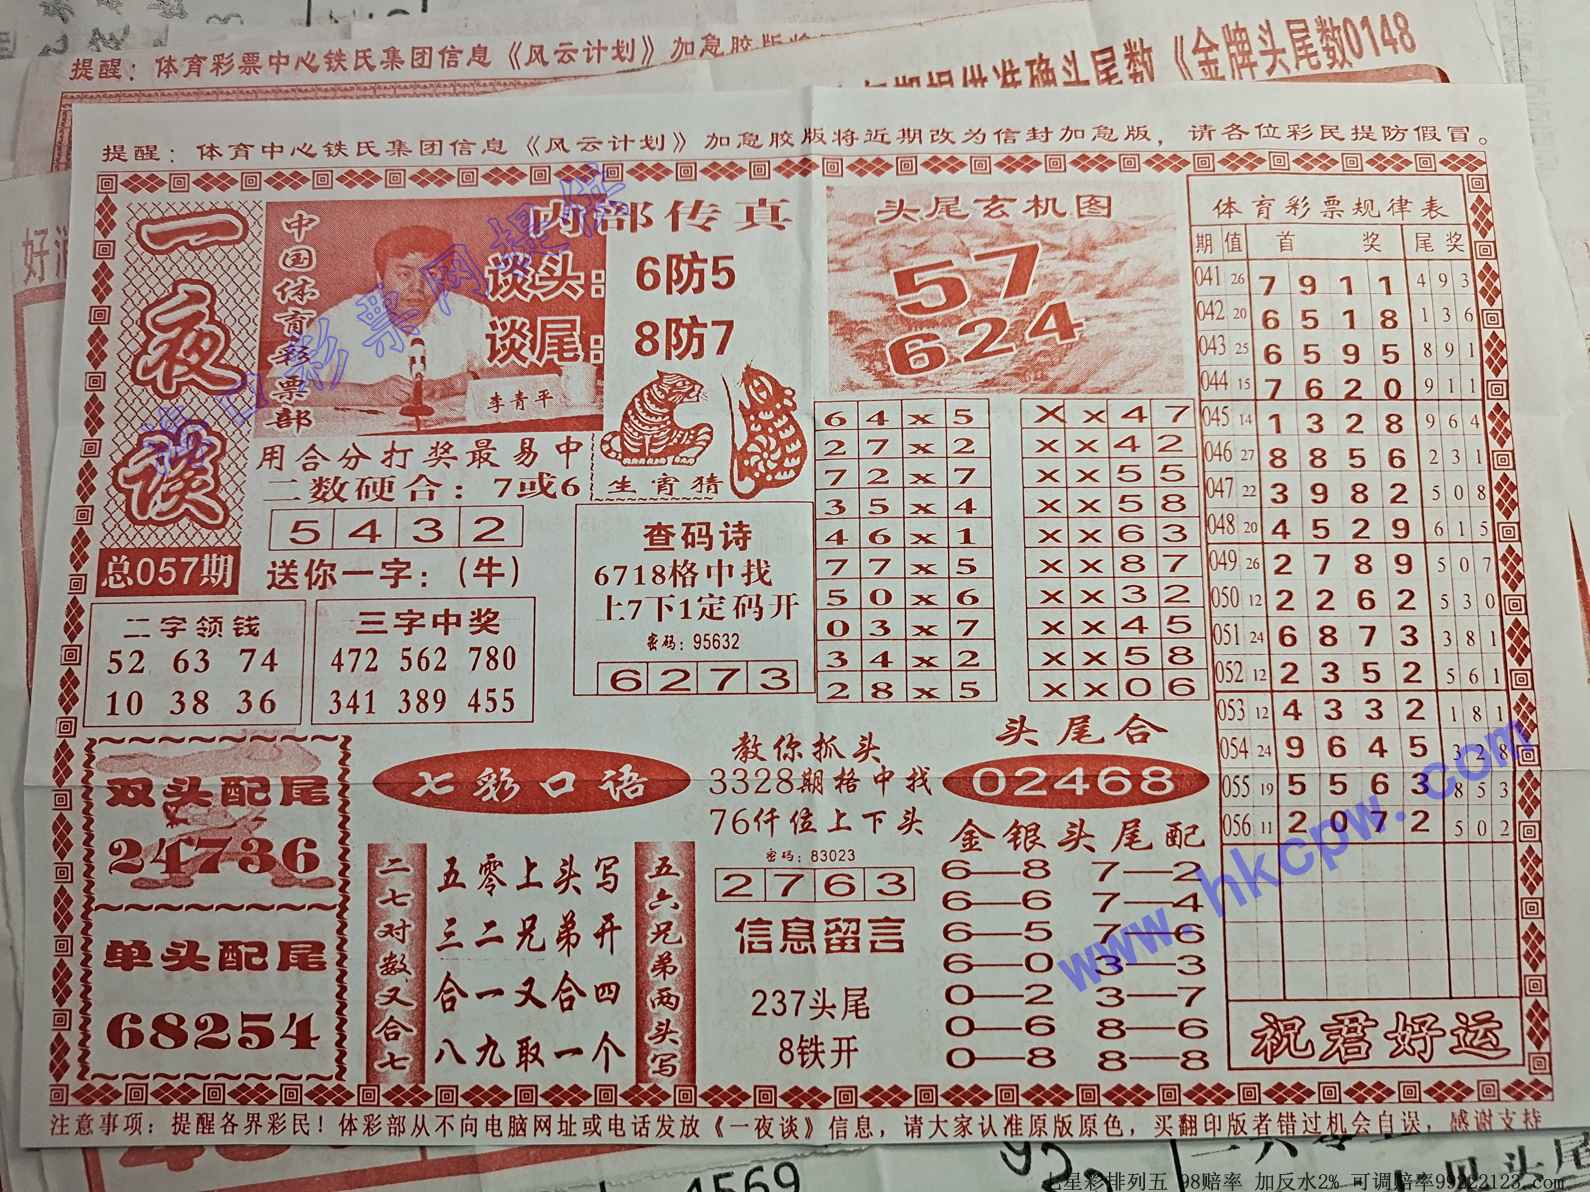 提醒：体育彩票中心铁氏集团信息《风云计划》加急胶版将
准确头尾数《金牌头尾数0148
提醒：体育中心铁氏集团信息《风云计划》加急胶版将近期改为信封加急版，请各位彩民提防假冒。
一夜谈
总057期
中国体育彩票部
内部传真
谈头：6防5
谈尾：8防7
李青平
用合分打奖最易中
二数硬合：7或6
5 4 3 2
送你一字：(牛)
生肖猜
头尾玄机图
57
624
查码诗
6718格中找
上7下1定码开
密码：95632
6 2 7 3
二字领钱
52 63 74
10 38 36
三字中奖
472 562 780
341 389 455
6 4 x 5
2 7 x 2
7 2 x 7
3 5 x 4
4 6 x 1
7 7 x 5
5 0 x 6
0 3 x 7
3 4 x 2
2 8 x 5
X x 4 7
x x 4 2
x x 5 5
x x 5 8
x x 6 3
x x 8 7
x x 3 2
x x 4 5
x x 5 8
x x 0 6
体育彩票规律表
期 值 首 奖 尾 奖
041 26 7 9 1 1 4 9 3
042 20 6 5 1 8 1 3 6
043 25 6 5 9 5 8 9 1
044 15 7 6 2 0 9 1 1
045 14 1 3 2 8 9 6 4
046 27 8 8 5 6 2 3 1
047 22 3 9 8 2 5 0 8
048 20 4 5 2 9 6 1 5
049 26 2 7 8 9 5 0 7
050 12 2 2 6 2 5 3 0
051 24 6 8 7 3 3 8 1
052 12 2 3 5 2 5 6 1
053 12 4 3 3 2 1 8 1
054 24 9 6 4 5 3 2 8
055 19 5 5 6 3 8 5 3
056 11 2 0 7 2 5 0 2
祝君好运
双头配尾
24736
单头配尾
68254
七彩口语
二七对数又合七
五零上头写
三二兄弟开
合一又合四
八九取一个
五六兄弟两头写
教你抓头
3328期格中找
76仟位上下头
密码：83023
2 7 6 3
信息留言
237头尾
8铁开
头尾合
02468
金银头尾配
6—8 7—2
6—6 7—4
6—5 7—6
6—0 3—3
0—2 3—7
0—6 8—6
0—8 8—8
www.hkcpw.com
注意事项：提醒各界彩民！体彩部从不向电脑网址或电话发放《一夜谈》信息，请大家认准原版原色，买翻印版者错过机会自误，感谢支持
4569
七星彩排列五 98赔率 加反水2% 可调赔率99222123.com